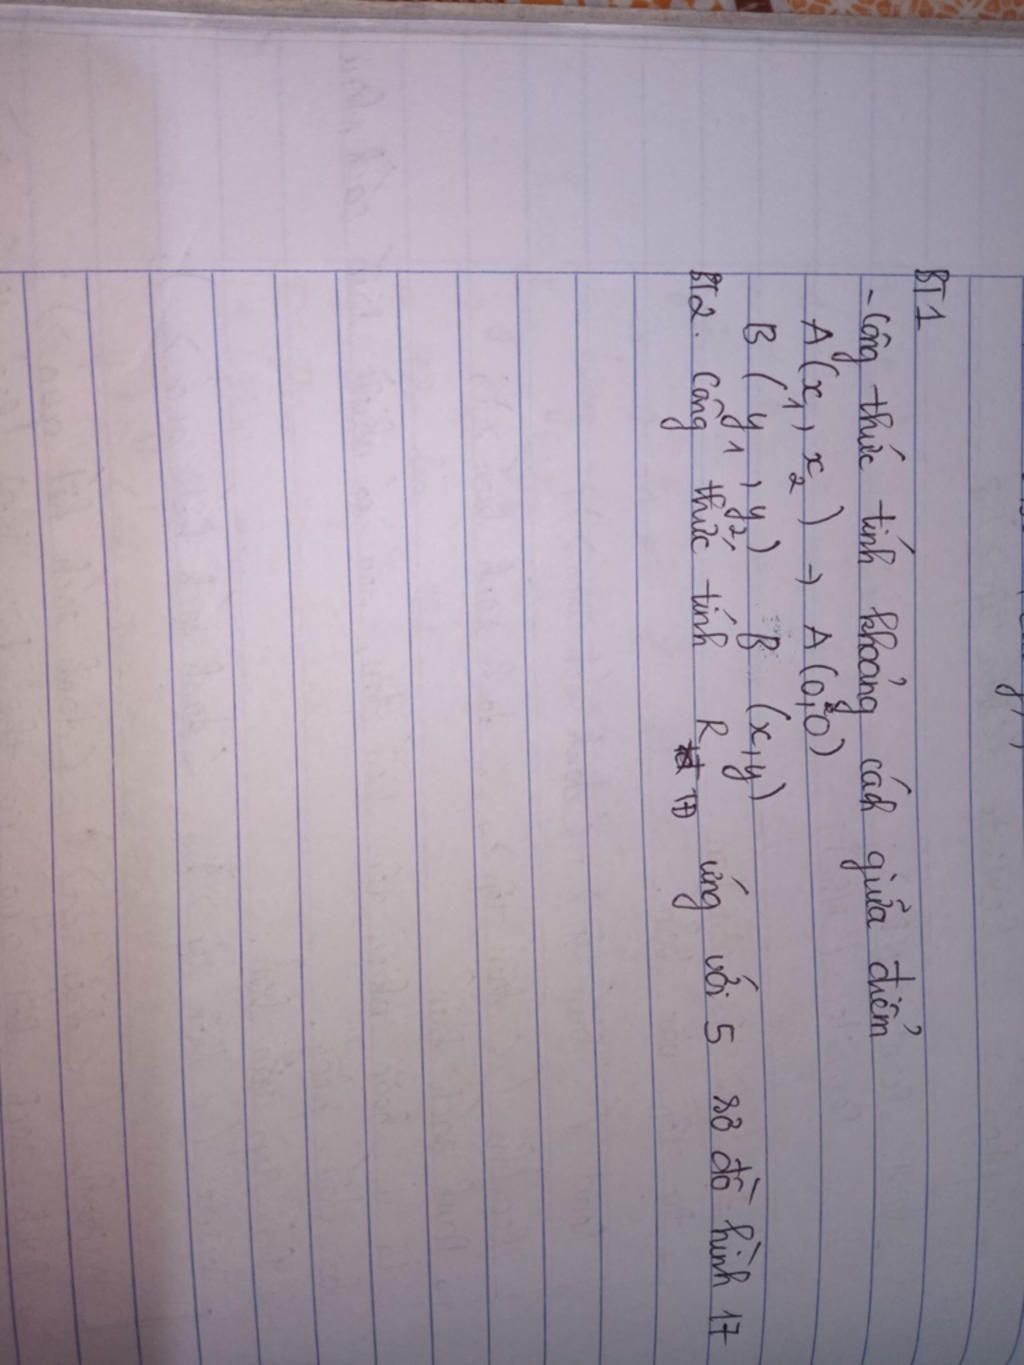 BT1
- Công thức tính khoảng cách giữa điểm
A (x1, x2) → A (0,0)
B ( y1, y2, ) B (x, y)
BT2. Công thức tính RTĐ ứng với 5 sơ đồ hình 17